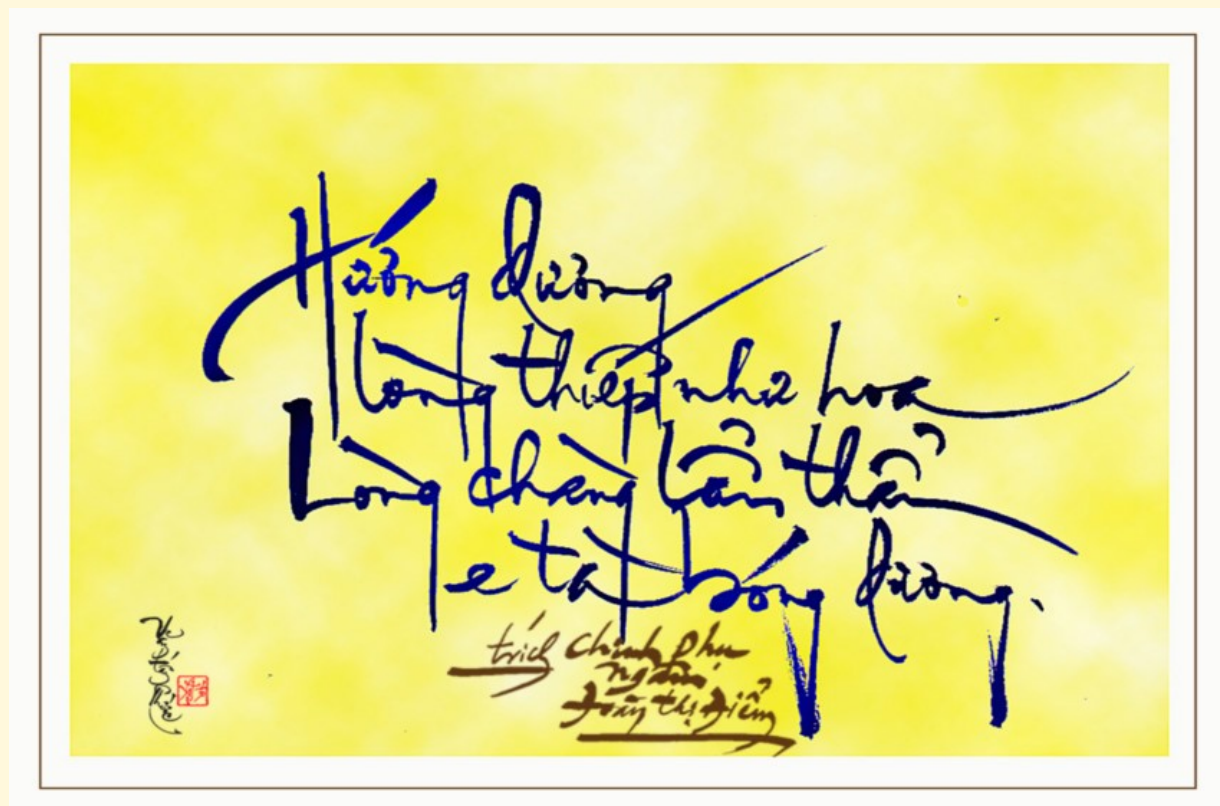 Hướng dương
lòng thiếp như hoa
Lòng chàng lẩn thẩn
e tà bóng dương.
trích Chinh Phụ
ngâm
Đoàn thị Điểm